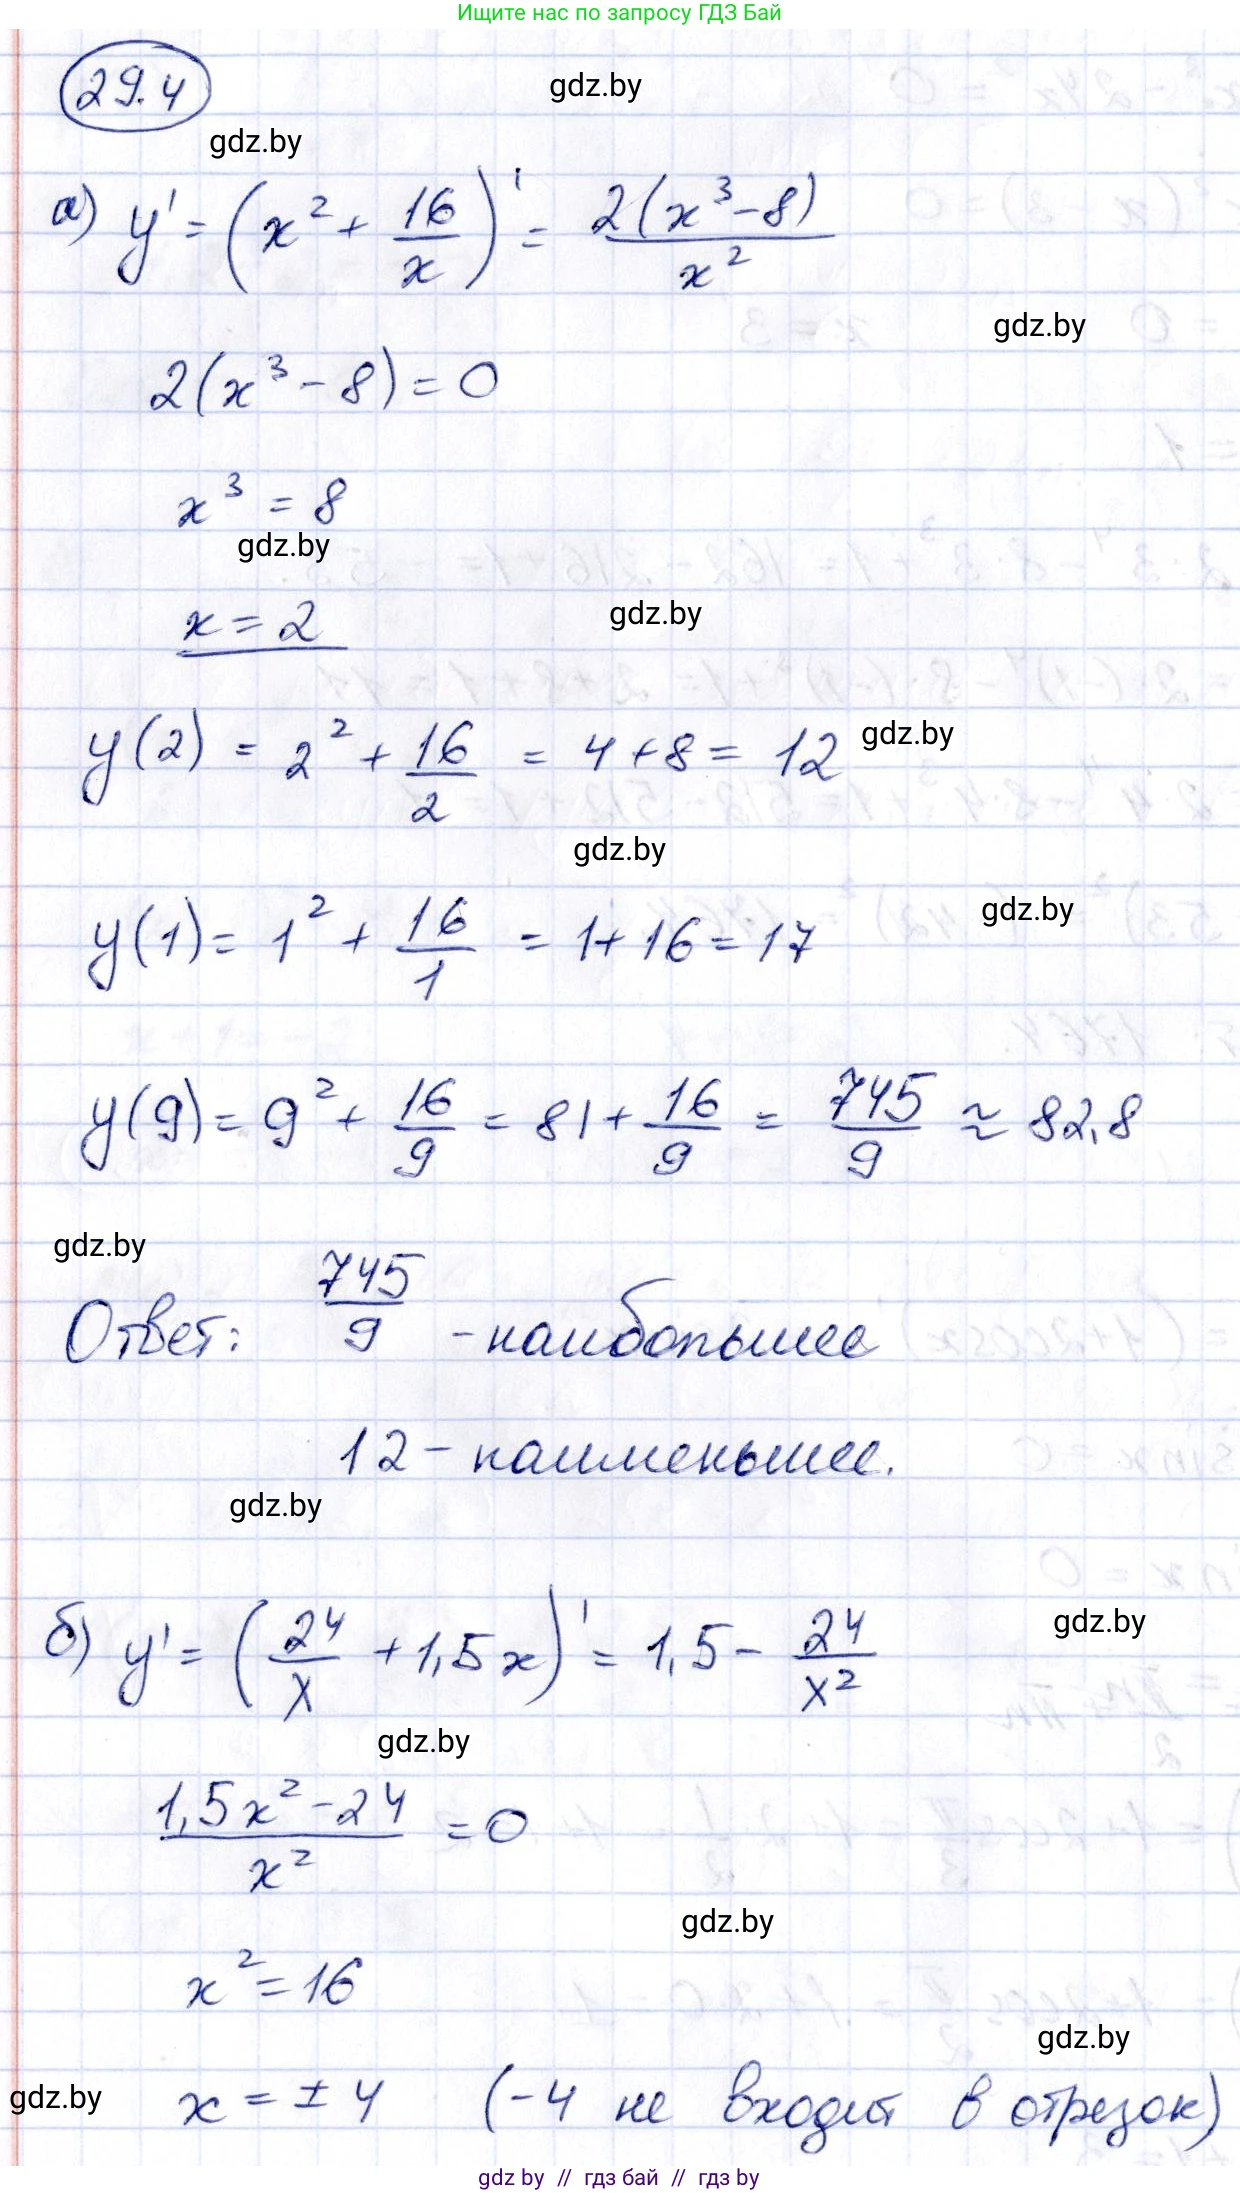 Ищите нас по запросу ГДЗ Бай
29.4
gdz.by
gdz.by
а) y' = (x² + 16/x)' = 2(x³-8)/x²
gdz.by
2(x³-8)=0
x³ = 8
gdz.by
x = 2
gdz.by
y(2) = 2² + 16/2 = 4+8 = 12
gdz.by
gdz.by
y(1) = 1² + 16/1 = 1+16 = 17
gdz.by
y(9) = 9² + 16/9 = 81 + 16/9 = 745/9 ≈ 82,8
gdz.by
Ответ: 745/9 - наибольшее
12 - наименьшее.
gdz.by
б) y' = (24/x + 1,5x)' = 1,5 - 24/x²
gdz.by
gdz.by
(1,5x²-24)/x² = 0
gdz.by
x² = 16
gdz.by
gdz.by
x = ± 4 (-4 не входит в отрезок)
gdz by // гдз бай // гдз by